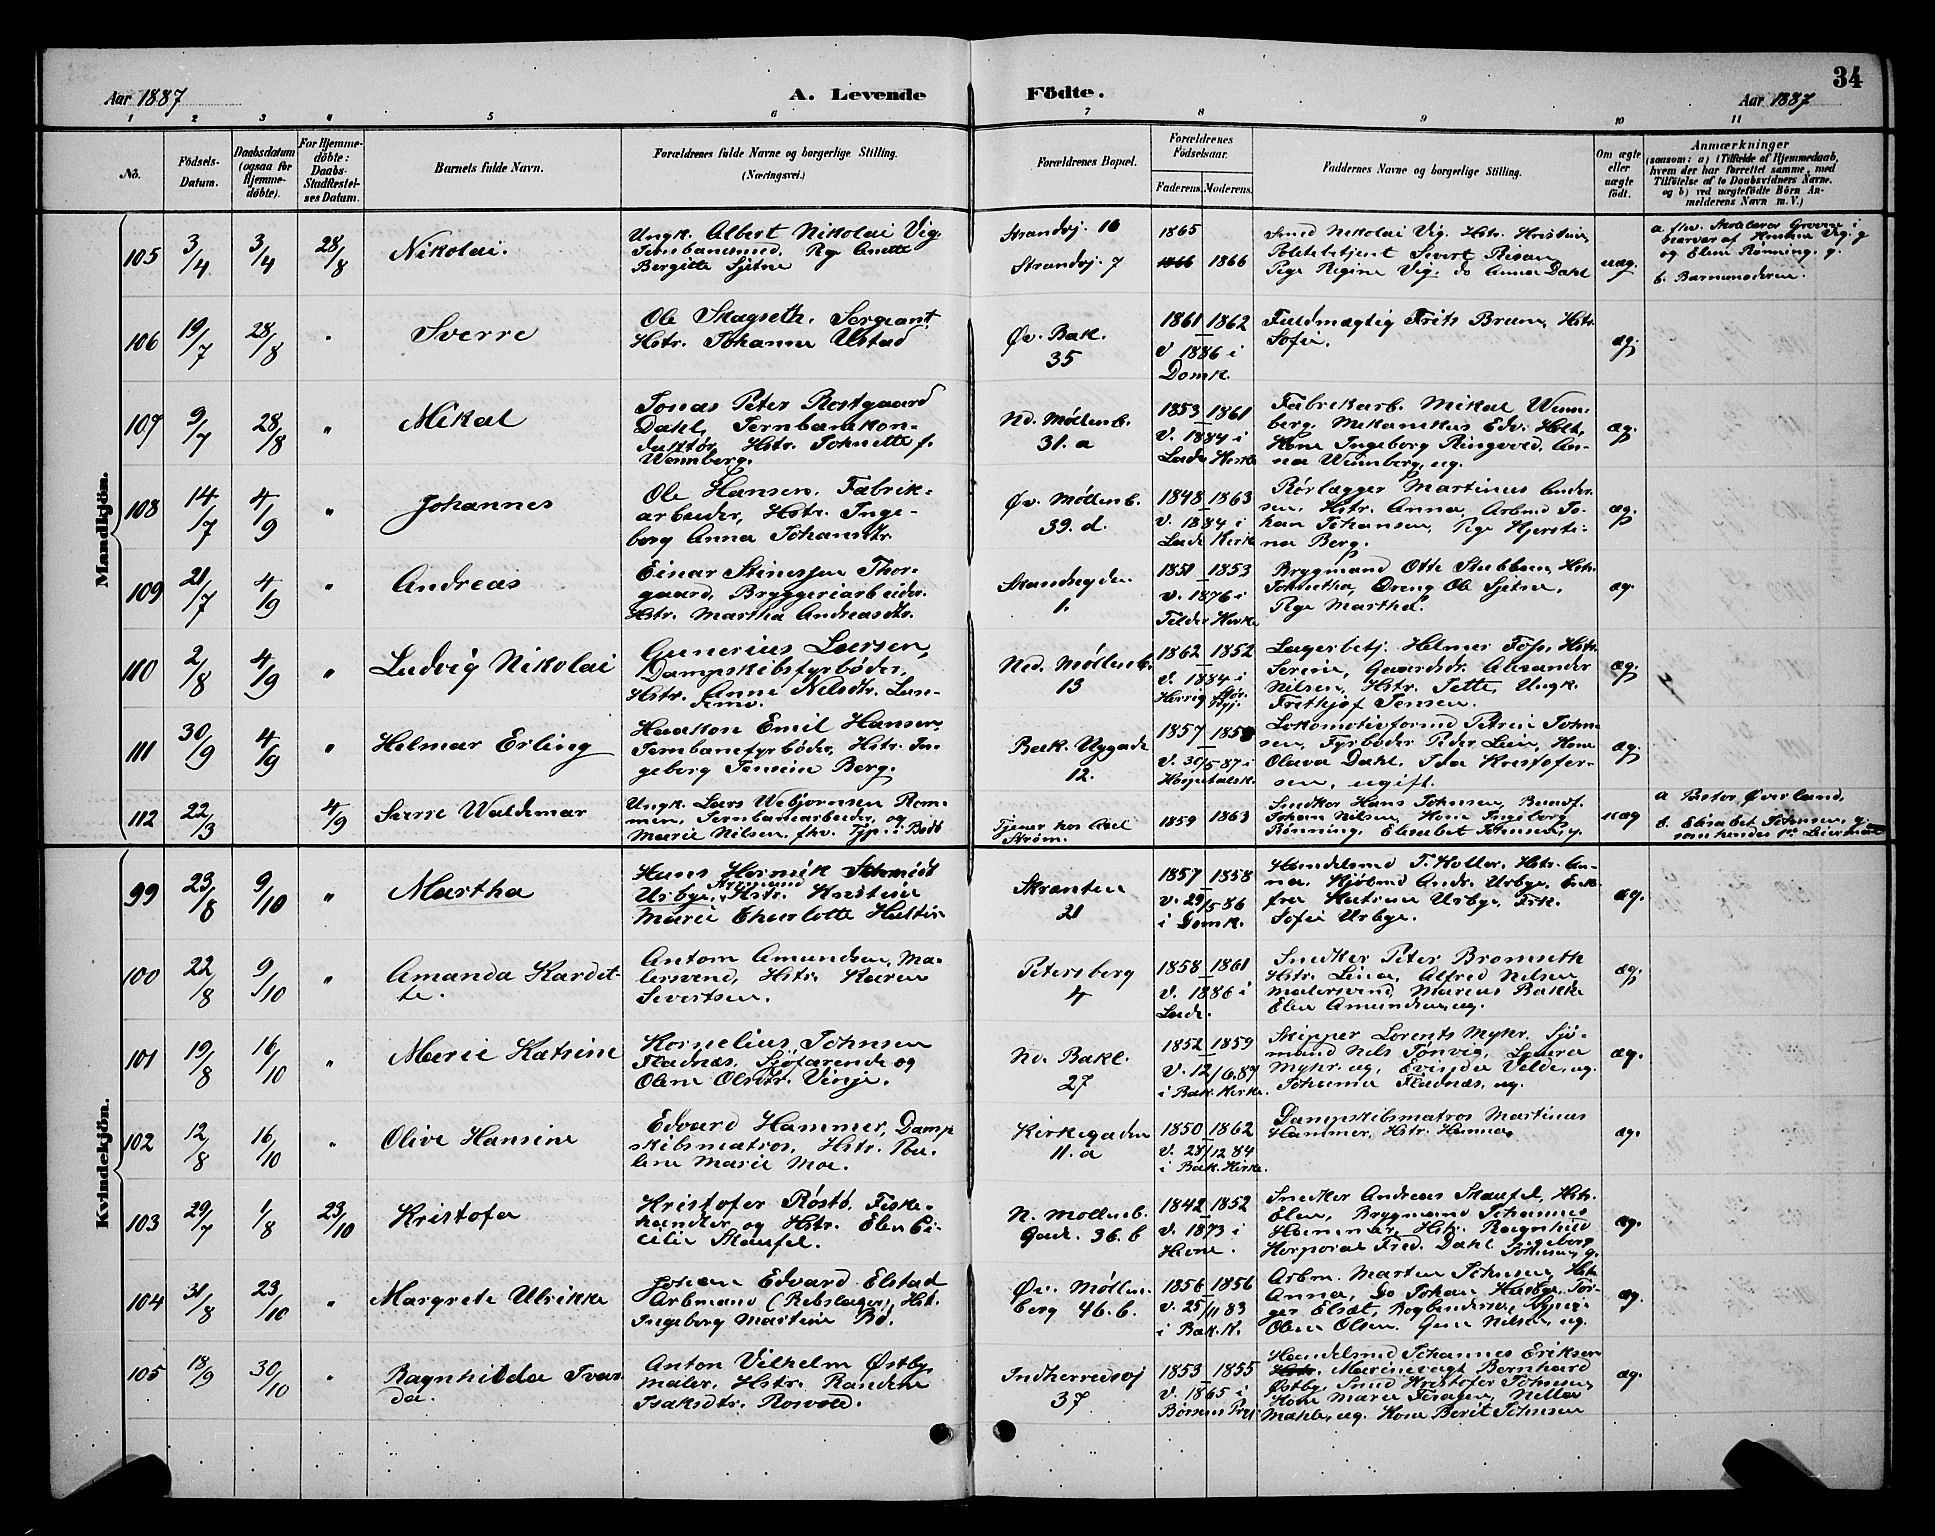 34
Aar 1887
A. Levende Födte.
Aar 1887
1 2 3 4 5 6 7 8 9 10 11
No.
Födsels-
Datum.
Daabsdatum
(ogsaa for
Hjemme-
döbte).
For Hjemme-
döbte:
Daabs-
Stadfæstel-
ses Datum.
Barnets fulde Navn.
Forældrenes fulde Navne og borgerlige Stilling.
(Næringsvei.)
Forældrenes Bopæl.
Forældrenes
Födselsaar.
Faderens. Moderens.
Faddernes Navne og borgerlige Stilling.
Om ægte
eller
uægte
født.
Anmærkninger
(saasom: a) i Tilfælde af Hjemmedaab,
hvem der har forrettet samme, med
Tilföielse af to Daabsvidners Navne.
og b) ved uægtefödte Börn An-
melderens Navn m. V.)
Mandkjön.
105 3/4 3/4 28/8 Nikolai.
Ungk. Albert Nikolai Vig,
Jernbanesmed, Pge Anette
Bergitte Sjetne
Strandvj. 16
Strandvj. 7
1865
1866 1866
Smed Nikolai Vig, Hstr. Kristine,
Politibetjent Sivert Risan,
Pige Regine Vig, do Anna Dahl
uæg.
og Elene Rønning, g.
b. Barnemoderen.
106 19/7 28/8 " Sverre
Ole Skagseth, Sergeant,
Hstr. Johanna Ustad
Øv. Bak.
35
1861 1862
V. 1886 i
Domk.
Fuldmægtig Frits Bruun, Hstr.
Sofie.
æg.
107 9/7 28/8 " Mikal
Jonas Peter Rostgaard
Dahl, Jernbanekon-
duktør, Hstr. Johnette f.
Wennberg.
Nd. Møllenb.
31. a
1853 1861
V. 1884 i
Lade Kirke
Fabrikarb. Mikal Wenn-
berg, Mekanikus Edv. Holt,
Kone Ingeborg Ringved, An-
na Wennberg, ug.
æg.
108 14/7 4/9 " Johannes
Ole Hansen, Fabrik-
arbeider, Hstr. Inge-
borg Anna Johansdtr.
Øv. Møllenb.
39. d.
1848 1863
V. 1884 i
Lade Kirke
Rørlægger Martinus Ander-
sen, Hstr. Anna, Arbmd Jo-
han Johansen, Pige Kjersti-
na Berg.
æg.
109 21/7 4/9 " Andreas
Einar Stinessen Thor-
gaard, Bryggeriarbeider,
Hstr. Martha Andreasdtr.
Strandgaden
1.
1851 1853
V. 1876 i
Tilder Kirke
Brygmand Otte Stubban, Hstr.
Johnetha, Dreng Ole Sjetne,
Pge Martha.
æg.
110 2/8 4/9 " Ludvig Nikolai
Gunerius Larsen,
Dampskibsfyrbøder,
Hstr. Anne Nilsdtr. Lun-
demo.
Ned. Møllenb.
13
1862 1852
V. 1884 i
Lagerbetj. Helmer Foss, Hstr.
Serine, Gaardsdr. Alexander
Nilsen, Hstr. Jette, Ungk.
Fritkjof Jensen.
æg.
111 30/9 4/9 " Helmar Erling
Haakon Emil Hansen,
Jernbanefyrbøder, Hstr. In-
geborg Jensine Berg.
Bak. Nygade
12.
1857 185
V. 30/5 87 i
Hospitalsk.
Lokomotivformd Petrin John-
sen, Fyrbøder Peder Lein, Kone
Olava Dahl, Ida Kristofer-
sen, ugift.
æg.
112 22/3 4/9 Sverre Waldemar
Ungk. Lars Webjørnsen Rom-
men, Jernbanearbeider, og
Marie Nilsen, fhv. Tjp. i Bodø
Tjener hos Axel
Strøm.
1859 1863
Snedker Hans Johnsen, Bundtm.
Johan Nilsen, Kone Ingeborg
Rønning, Elisabet Johnsen, g.
uæg
a. Pastor Øverland,
b. Elisabet Johnsen, g.
Kvindekjön.
99 23/8 9/10 " Martha
Hans Henrik Schmidt
Urbye, Hstr. Kristine
Marie Charlotte
Stranden
21
1857 1858
V. 29/5 86
i Domk.
Handelsmd T. Holler, Hstr. An-
na, Kjøbmd Andr. Urbye, Enke-
fru Katrine Urbye, Frk.
Sofie Urbye.
æg.
100 22/8 9/10 " Amanda Kardit-
te.
Anton Amundsen, Ma-
lersvend, Hstr. Karen
Sivertsen.
Petersberg
4
1858 1861
V. 1886 i
Lade.
Snedker Peter Bromseth
Hstr. Lina, Alfred Nilsen
Malersvend, Marius Bakke
Elen Amundsen, ug.
æg.
101 19/8 16/10 " Marie Katrine
Kornelius Johnsen
Fladnæs, Sjøfarende og
Olene Olsdtr. Vinje.
Nd. Bakl.
27
1852 1859
V. 12/6. 87
i Bak. Kirke.
Skipper Lorents Myhr, Sjø-
mand Nils Tønvig, Laura
Myhr, ug, Evinda Velde, ug.
Johanna Fladnæs, ug.
æg.
102 12/8 16/10 " Olive Hansine
Edvard Hammer, Damp-
skibsmatros, Hstr. Pau-
line Marie Moe.
Kirkegaden
11. a
1850 1862
V. 28/12 84
i Bak. Kirke.
Dampskibsmatros Martinus
Hammer, Hstr. Hanna,
æg.
103 29/7 1/8 23/10 Kristofa
Kristofer Røstø, Fiske-
handler og Hstr. Elen Ce-
cilie Skaufel.
N. Møllenb.
Gade. 36. b
1842 1852
V. 1873 i
Hevne.
Snedker Andreas Skaufel, Hstr.
Elen, Brygmand Johannes
Hammer, Hstr. Ragnhild
Korporal Fred. Dahl, Ingeborg
Johnsen, g.
æg.
104 31/8 23/10 " Margrete Ulrikke
Johan Edvard Elstad
Arbmand (Rebslager), Hst.
Ingeborg Martine Bø.
Øv. Møllen-
berg 46. b.
1856 1856
V. 25/11 83
i Bak. K.
Arbm. Martin Johnsen, Hstr.
Anna, Do Johan Husby, Tor-
ger Elsæt, Bogbindersv.,
Oline Olsen, Gina Nilsen, ug.
æg.
105 18/9 30/10 " Ragnhilda Ivar-
da.
Anton Vilhelm Østby,
Maler, Hstr. Randine
Isaksdtr. Rosvold.
Indherredsvj
37
1853 1855
V. 1865 i
Børsens Præ
Handelsmd Johannes Eriksen
Hstr. Marinevagt Bernhard
Østby, Smed Kristofer Johnsen,
Kone Marie Foragen, Nilla
Mæhle, ug. Kone Berit Johnsen
æg.